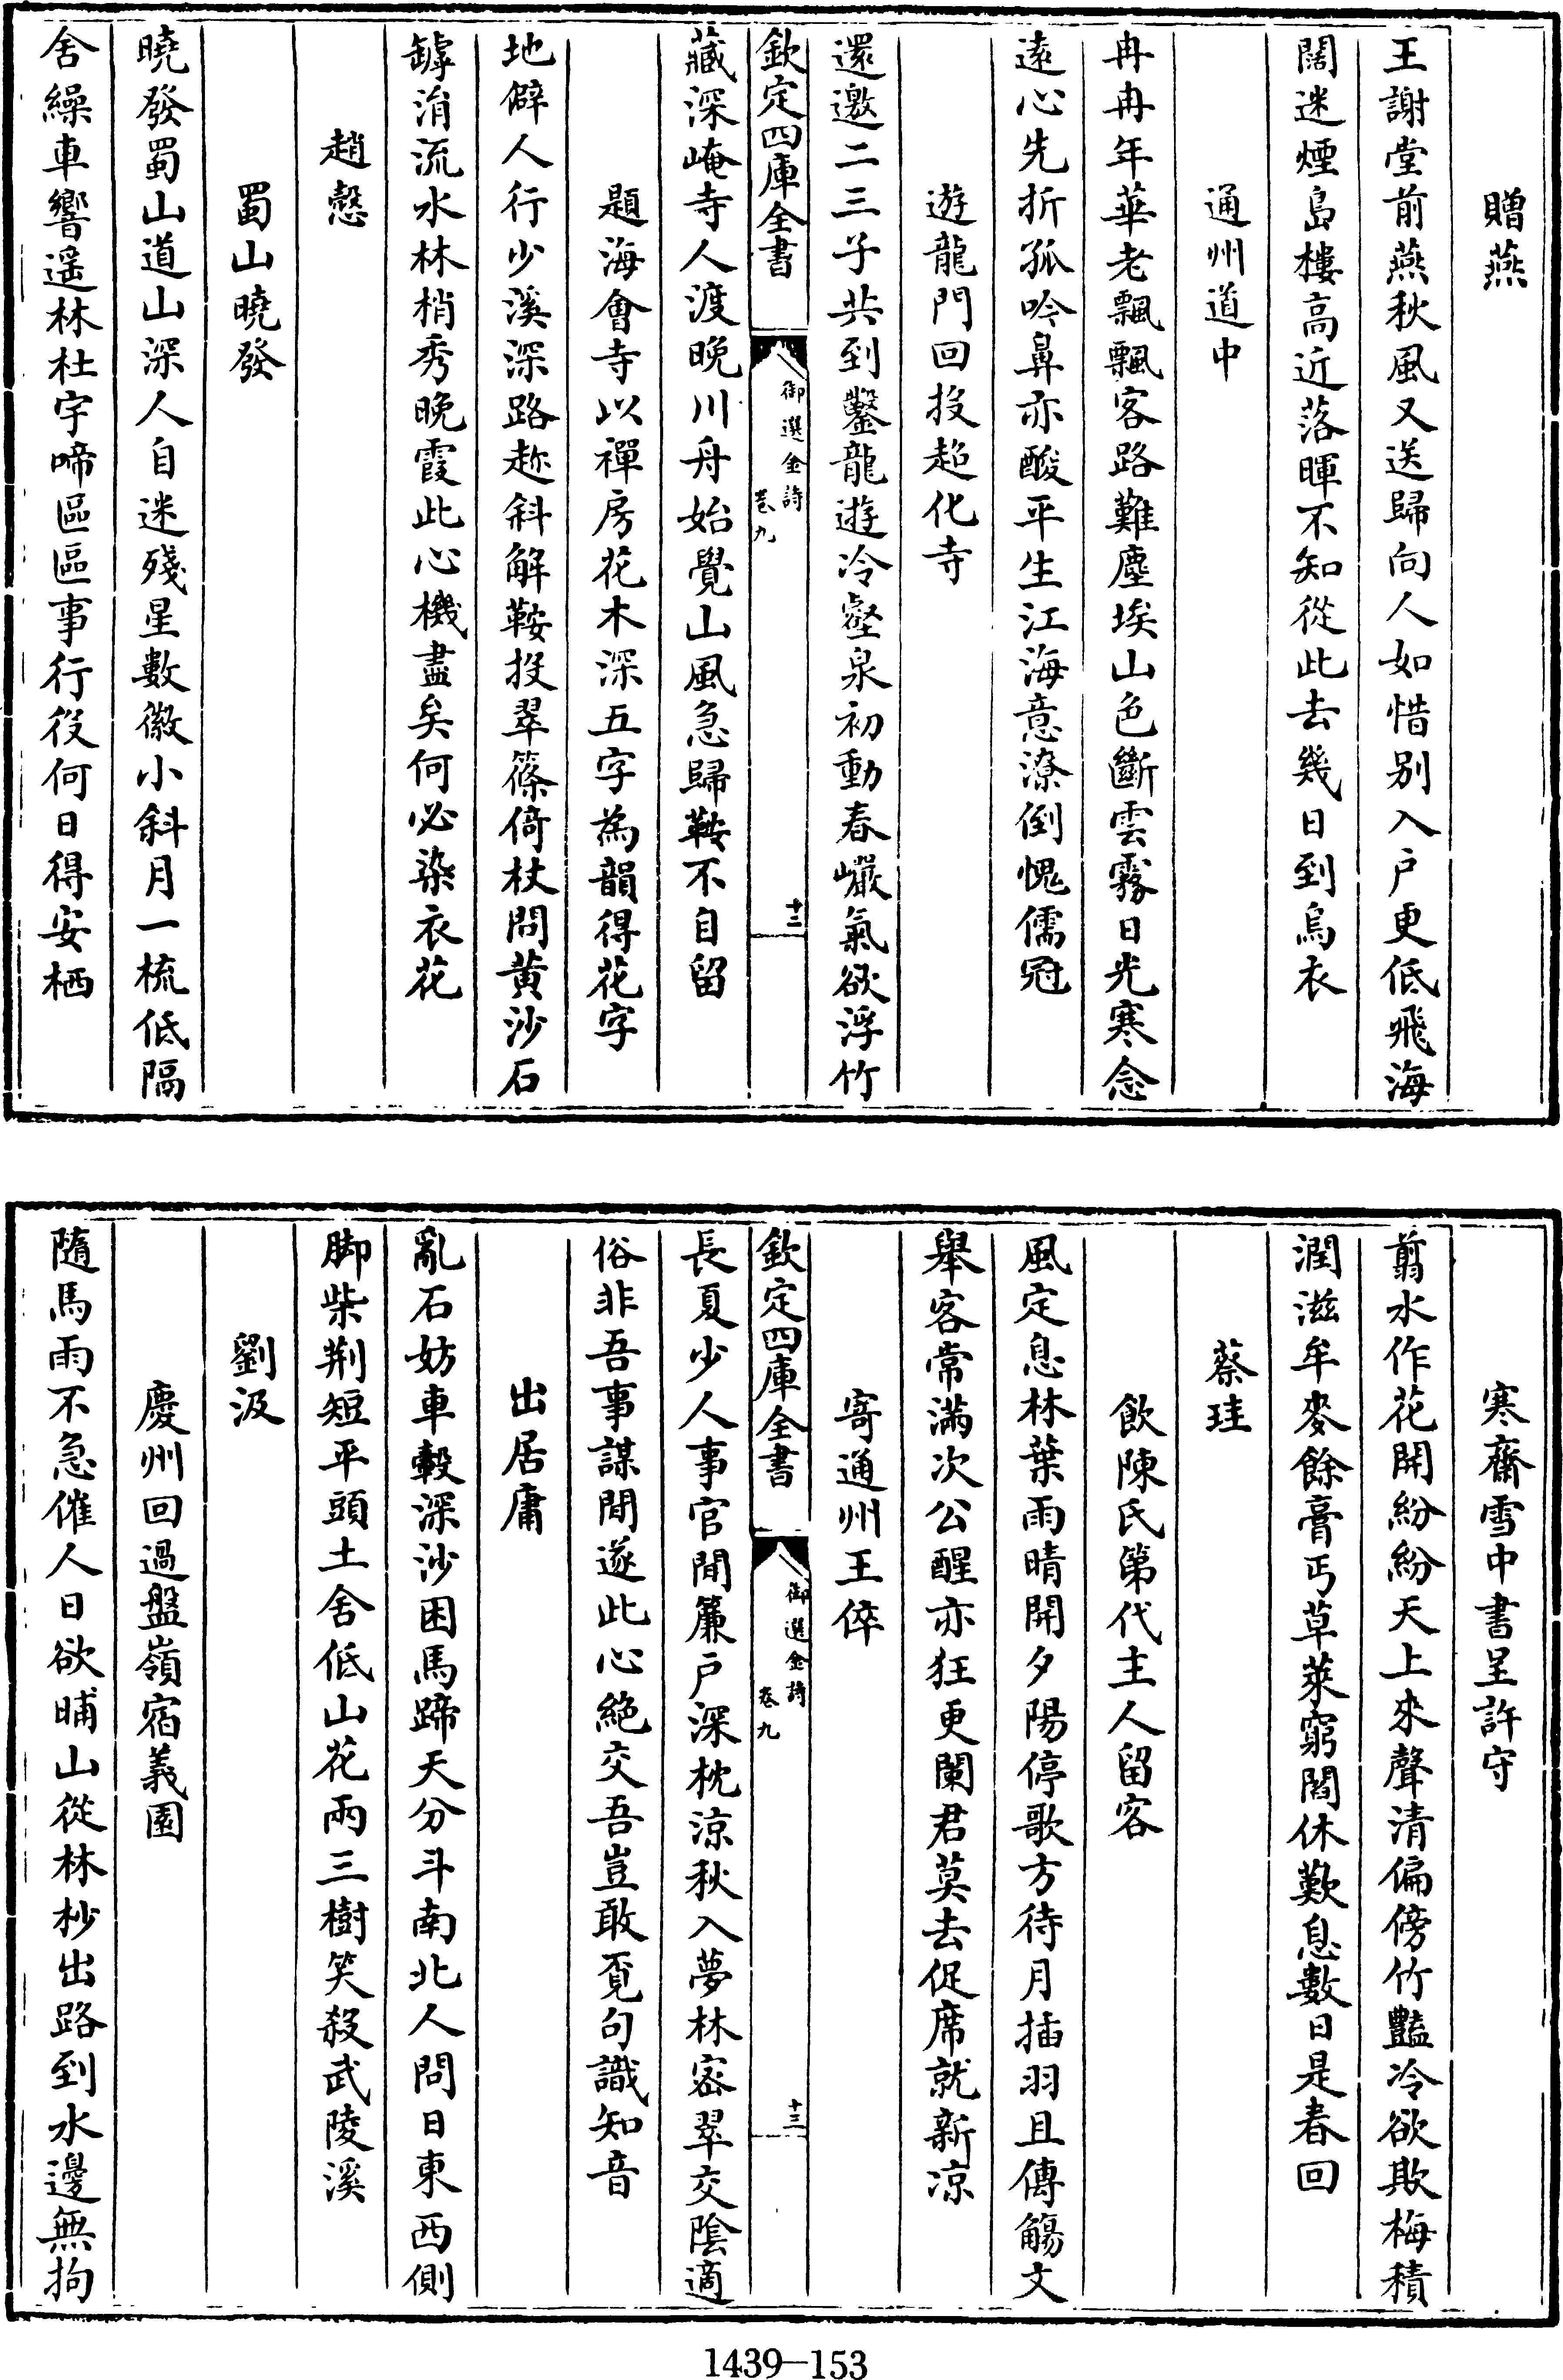 贈燕
王謝堂前燕秋風又送歸向人如惜别入户更低飛海
闊迷煙島樓高近落暉不知從此去幾日到烏衣
通州道中
冉冉年華老飄飄客路難塵埃山色斷雲霧日光寒念
遠心先折孤吟鼻亦酸平生江海意潦倒愧儒冠
遊龍門回投超化寺
還邀二三子共到鑿龍遊冷壑泉初動春巖氣欲浮竹
欽定四庫全書
御選金詩
卷九
十二
藏深崦寺人渡晚川舟始覺山風急歸鞍不自留
題海會寺以禪房花木深五字為韻得花字
地僻人行少溪深路趂斜解鞍投翠篠倚杖問黄沙石
罅涓流水林梢秀晚霞此心機盡矣何必染衣花
趙慤
蜀山曉發
曉發蜀山道山深人自迷殘星數徽小斜月一梳低隔
舍繰車響遥林杜宇啼區區事行役何日得安栖
寒齋雪中書呈許守
翦水作花開紛紛天上來聲清偏傍竹豔冷欲欺梅積
潤滋牟麥餘膏丐草萊窮閻休歎息數日是春回
蔡珪
飲陳氏第代主人留客
風定息林葉雨晴開夕陽停歌方待月插羽且傳觴文
舉客常滿次公醒亦狂更闌君莫去促席就新涼
寄通州王倅
欽定四庫全書
御選金詩
卷九
十三
長夏少人事官閒簾户深枕涼秋入夢林密翠交陰適
俗非吾事謀閒遂此心絶交吾豈敢覔句識知音
出居庸
亂石妨車轂深沙困馬蹄天分斗南北人問日東西側
脚柴荆短平頭土舍低山花兩三樹笑殺武陵溪
劉汲
慶州回過盤嶺宿義園
隨馬雨不急催人日欲晡山從林杪出路到水邊無拘
1439—153